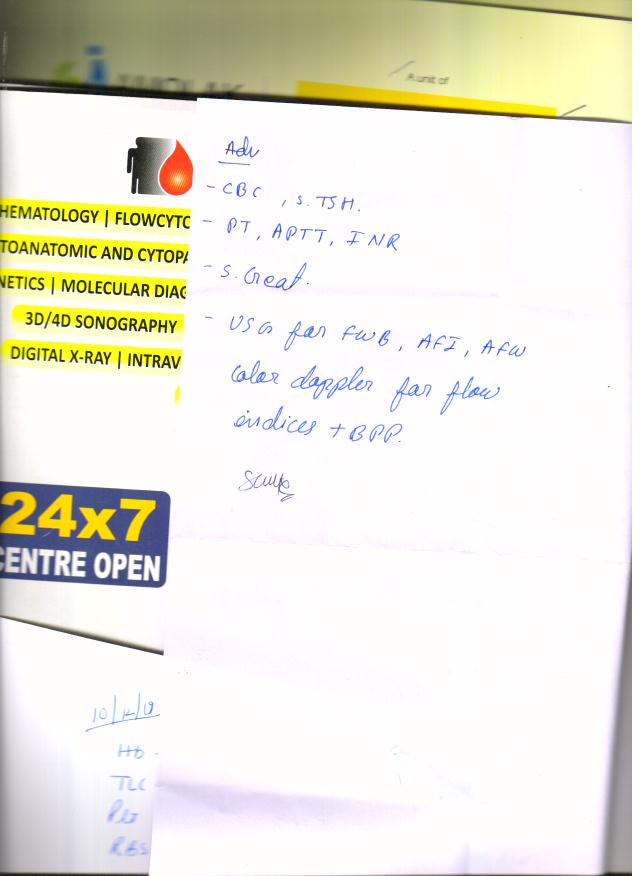 A unit of
HEMATOLOGY | FLOWCYTO
TOANATOMIC AND CYTOPA
NETICS | MOLECULAR DIAG
3D/4D SONOGRAPHY
DIGITAL X-RAY | INTRAV
24x7
CENTRE OPEN
Adv
- CBC , S. TSH.
- PT, APTT, INR
- S. Creat.
- USG for FWB, AFI, AFW
color doppler for flow
indices + BPP.
Hb -
TLC -
Plt
RBS